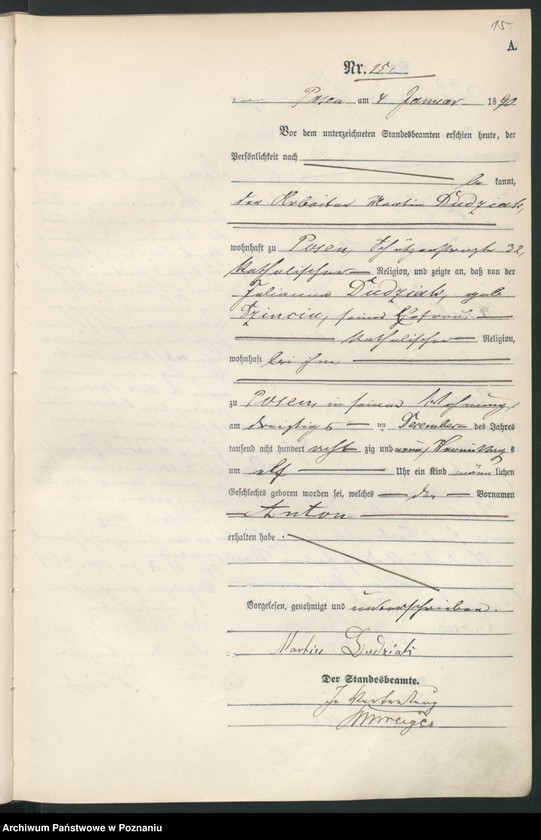 15
A.
Nr. 15.
Posen am 4 Januar 1890
Vor dem unterzeichneten Standesbeamten erschien heute, der
Persönlichkeit nach
be kannt,
der Arbeiter Martin Dudziak,
wohnhaft zu Posen, Schützenstraße 32,
katholischer Religion, und zeigte an, daß von der
Julianna Dudziak, geb
seiner Ehefrau
katholischer Religion,
wohnhaft bei ihm
zu Posen, in seiner Wohnung,
am dreißigs ten December des Jahres
tausend acht hundert acht zig und neun, Vormittag s
um elf Uhr ein Kind männ lichen
Geschlechts geboren worden sei, welches den Vornamen
Anton
erhalten habe.
Vorgelesen, genehmigt und unterschrieben.
Martin Dudziak
Der Standesbeamte.
In Vertretung
Archiwum Państwowe w Poznaniu